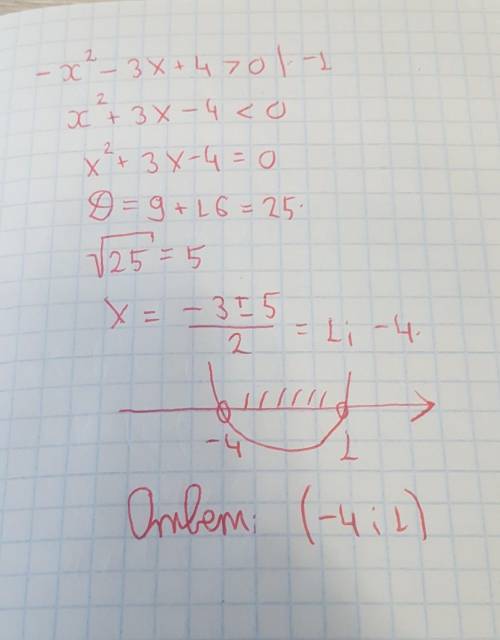 -x² - 3x + 4 > 0 | · -1
x² + 3x - 4 < 0
x² + 3x - 4 = 0
D = 9 + 16 = 25.
√25 = 5
x = (-3 ± 5)/2 = 1; -4.
-4 1
Ответ: (-4; 1)